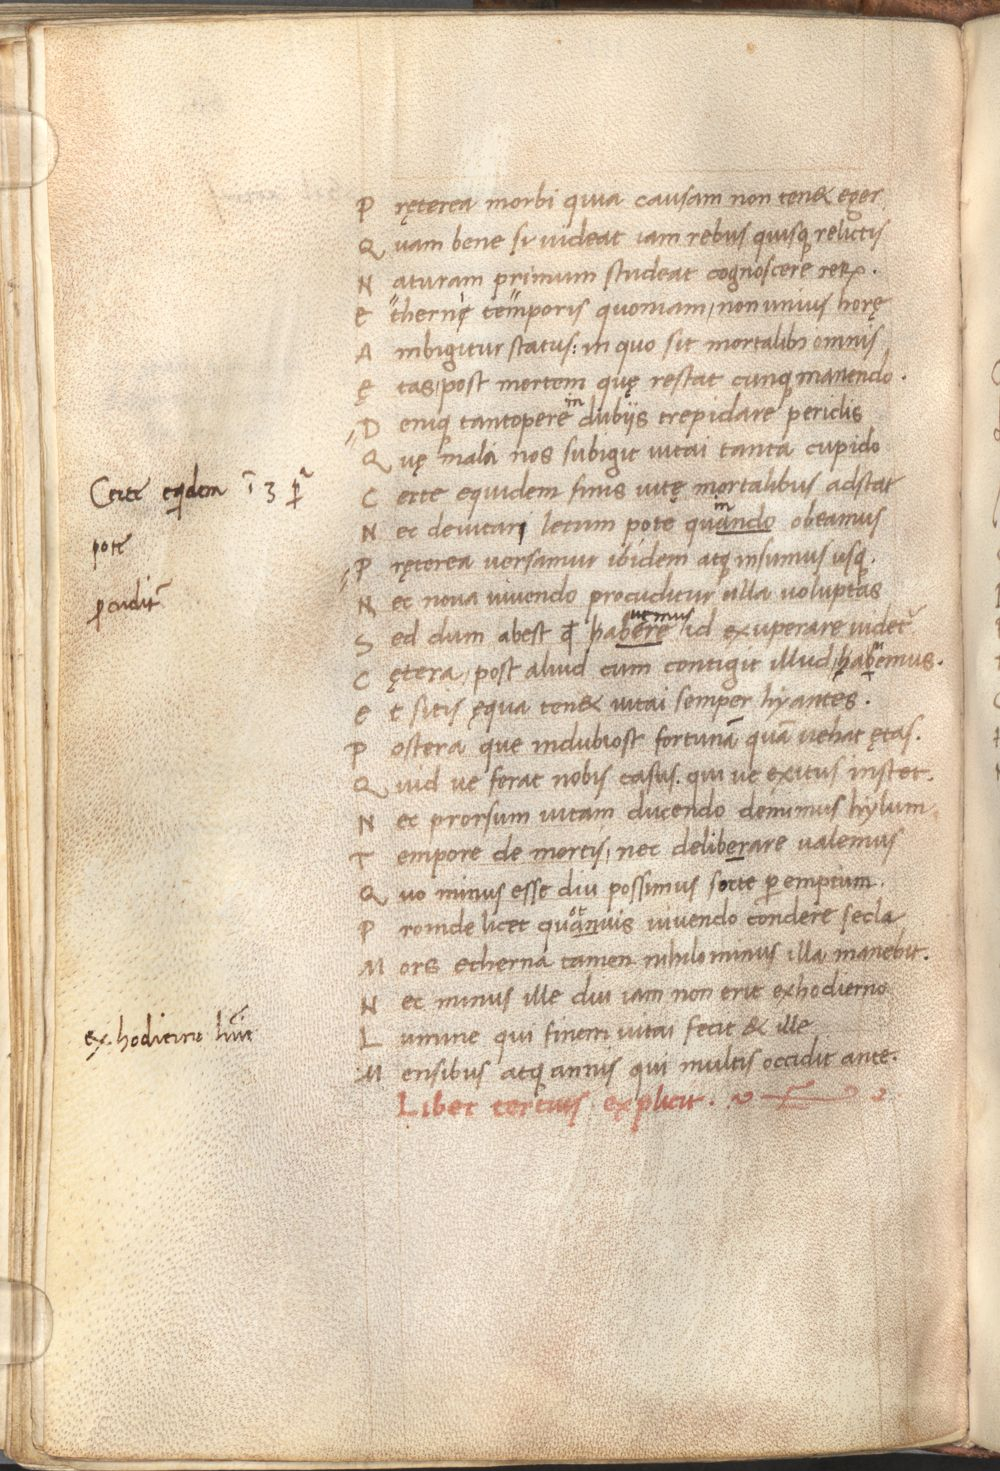 P ręterea morbi quia causam non ten& eger
Q uam bene si uideat iam rebus quisq; relictis
N aturam primum studeat cognoscere rerꝝ.
E thernę temporis quoniam, non unius horę
A mbigitur status: in quo sit mortalib; omnis
Ę tas, post mortem quę restat cunq; manendo.
D eniq; tantopere in dubijs trepidare periclis
Q uę mala nos subigit uitai tanta cupido
Certe eqdem ī 3 pͬ
C erte equidem finis uitę mortalibus adstat
N ec deuitari letum pote quando in obeamus
pote
P ręterea uersamur ibidem atq; insumus usq;.
N ec noua uiuendo procuditur ulla uoluptas
ꝓcudit̃
S ed dum abest qđ habere uemus id exuperare uidet̃
C ętera, post aliud cum contigit illud, habemus.
E t sitis ęqua ten& uitai semper hyantes.
P ostera que indubiost fortunā quā uehat ętas.
Q uid ue ferat nobis casus. qui ue exitus instet.
N ec prorsum uitam ducendo demimus hylum
T empore de mortis, nec deliberare ualemus
Q uo minus esse diu possimus sorte ꝑemptum.
P roinde licet quanuis ot uiuendo condere secla
M ors etherna tamen nihilominus illa manebit.
N ec minus ille diu iam non erit exhodierno
ex hodierno
L umine qui finem uitai fecit & ille
M ensibus atq; annis qui multis occidit ante.
Liber tertius explicit.